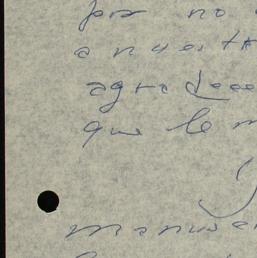 por no
a nuest
agradece
que le m
manuse